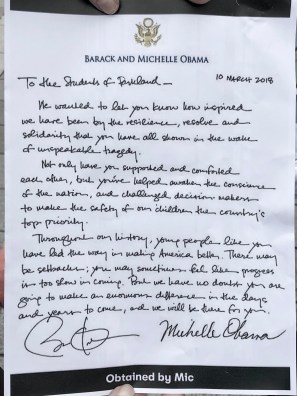 BARACK AND MICHELLE OBAMA
10 MARCH 2018
To the Students of Parkland —
We wanted to let you know how inspired
we have been by the resilience, resolve and
solidarity that you have all shown in the wake
of unspeakable tragedy.
Not only have you supported and comforted
each other, but you've helped awaken the conscience
of the nation, and challenged decision makers
to make the safety of our children the country's
top priority.
Throughout our history, young people like you
have led the way in making America better. There may
be setbacks; you may sometimes feel like progress
is too slow in coming. But we have no doubt you are
going to make an enormous difference in the days
and years to come, and we will be there for you.
Michelle Obama
Obtained by Mic